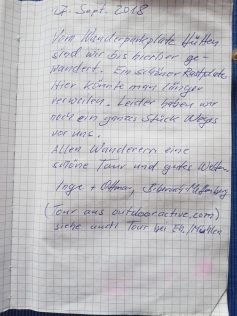 17. Sept. 2018
Vom Wanderparkplatz Hütten
sind wir bis hierher ge-
wandert. Ein schöner Rastplatz
Hier könnte man länger
verweilen. Leider haben wir
noch ein ganzes Stück Weges
vor uns.
Allen Wanderern eine
schöne Tour und gutes Wetter.
Inge + Ottmar,
(Tour aus outdooractive.com)
siehe auch Tour bei